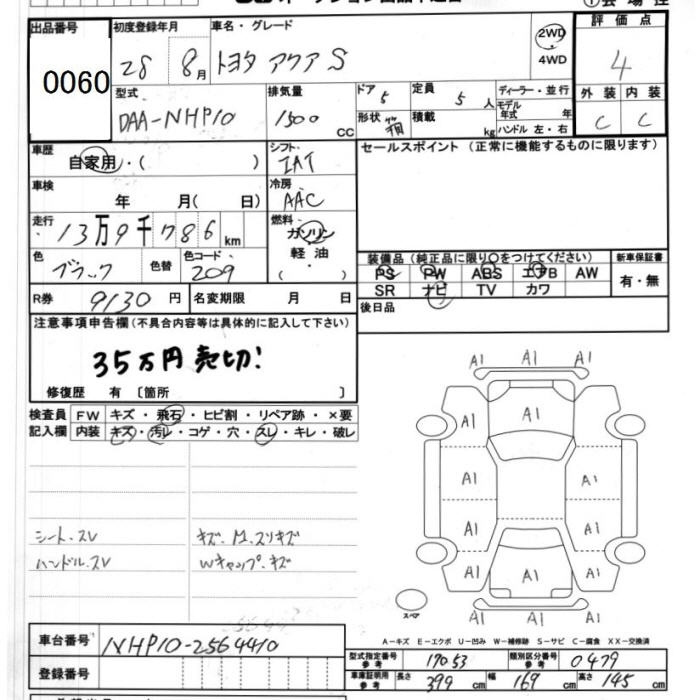 出品番号
0060
初度登録年月
28 8月
車名・グレード
トヨタ アクア S
2WD
4WD
評価点
4
外装 内装
C C
型式
DAA-NHP10
排気量
1500 CC
ドア 5
定員 5 人
形状 箱
積載 kg
ディーラー・並行
モデル年式 年
ハンドル 左・右
車歴
自家用・( )
シフト
IAT
セールスポイント(正常に機能するものに限ります)
車検
年 月( 日)
冷房
AAC
走行
13万9千786km
燃料
ガソリン
軽油
・( )
色
ブラック
色替
色コード
209
装備品(純正品に限り〇をつけてください)
PS PW ABS エアB AW
SR ナビ TV カワ
新車保証書
有・無
R券 9130円
名変期限 月 日
後日品
注意事項申告欄(不具合内容等は具体的に記入して下さい)
35万円売切!
修復歴 有 〔箇所 〕
検査員 FW キズ・飛石・ヒビ割・リペア跡・×要
記入欄 内装 キズ・汚レ・コゲ・穴・スレ・キレ・破レ
シート.スレ
ハンドル.スレ
キズ.M.スリキズ
Wキャップ.キズ
A1 A1 A1
A1 A1 A1
A1 A1
A1 A1
A1 A1 A1
A1 A1 A1
スペア
A-キズ E-エクボ U-凹み W-補修跡 S-サビ C-腐食 XX-交換済
車台番号 NHP10-2564410
登録番号
型式指定番号 参考 17053
類別区分番号 参考 0479
車庫証明用 参考 長さ 399 cm 幅 169 cm 高さ 145 cm